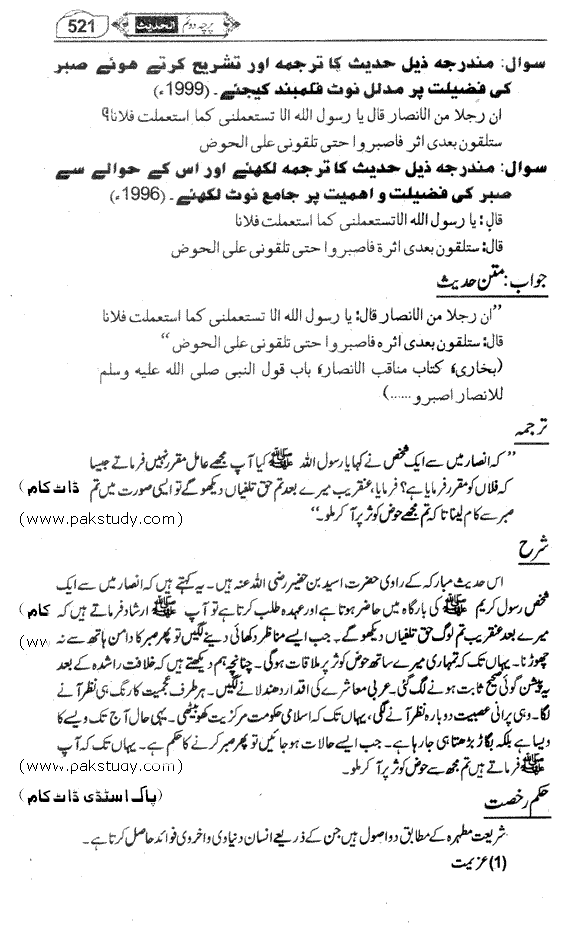 پرچہ دوئم الحدیث 521
سوال: مندرجہ ذیل حدیث کا ترجمہ اور تشریح کرتے ہوئے صبر
کی فضیلت پر مدلل نوٹ قلمبند کیجئے۔ (1999ء)
ان رجلا من الانصار قال یا رسول الله الا تستعملنی کما استعملت فلانا؟
ستلقون بعدی اثر فاصبروا حتی تلقونی علی الحوض
سوال: مندرجہ ذیل حدیث کا ترجمہ لکھئے اور اس کے حوالے سے
صبر کی فضیلت و اهمیت پر جامع نوٹ لکھئے۔ (1996ء)
قال: یا رسول الله الاتستعملنی کما استعملت فلانا
قال: ستلقون بعدی اثرة فاصبروا حتی تلقونی علی الحوض
جواب: متن حدیث
”ان رجلا من الانصار قال: یا رسول الله الا تستعملنی کما استعملت فلانا
قال: ستلقون بعدی اثره فاصبروا حتی تلقونی علی الحوض“
(بخاری، کتاب مناقب الانصار، باب قول النبی صلی الله علیه وسلم
للانصار اصبرو......)
ترجمہ
”کہ انصار میں سے ایک شخص نے کہا یا رسول اللہ ﷺ کیا آپ مجھے عامل مقرر نہیں فرماتے جیسا
کہ فلاں کو مقرر فرمایا ہے؟ فرمایا، عنقریب میرے بعد تم حق تلفیاں دیکھو گے تو ایسی صورت میں تم ڈاٹ کام)
صبر سے کام لینا تا کہ تم مجھے حوض کوثر پر آ کر ملو۔“ (www.pakstudy.com)
شرح
اس حدیث مبارکہ کے راوی حضرت اسید بن حضیر رضی اللہ عنہ ہیں۔ یہ کہتے ہیں کہ انصار میں سے ایک
شخص رسول کریم ﷺ کی بارگاہ میں حاضر ہوتا ہے اور عہدہ طلب کرتا ہے تو آپ ﷺ ارشاد فرماتے ہیں کہ کام)
میرے بعد عنقریب تم لوگ حق تلفیاں دیکھو گے۔ جب ایسے مناظر دکھائی دینے لگیں تو پھر صبر کا دامن ہاتھ سے نہ (ww
چھوڑنا۔ یہاں تک کہ تمہاری میرے ساتھ حوض کوثر پر ملاقات ہو گی۔ چنانچہ ہم دیکھتے ہیں کہ خلافت راشدہ کے بعد
یہ پیشن گوئی صحیح ثابت ہونے لگ گئی۔ عربی معاشرے کی اقدار دھندلانے لگیں۔ ہر طرف عجمیت کا رنگ ہی نظر آنے
لگا۔ وہی پرانی عصبیت دوبارہ نظر آنے لگی، یہاں تک کہ اسلامی حکومت مرکزیت کھو بیٹھی۔ یہی حال آج تک ویسے کا
ویسا ہے بلکہ بگاڑ بڑھتا ہی جا رہا ہے۔ جب ایسے حالات ہو جائیں تو پھر صبر کرنے کا حکم ہے۔ یہاں تک کہ آپ
ﷺ فرماتے ہیں تم مجھ سے حوض کوثر پر آ کر ملو۔ (www.pakstudy.com)
حکم رخصت (پاک اسٹڈی ڈاٹ کام)
شریعت مطہرہ کے مطابق دو اصول ہیں جن کے ذریعے انسان دنیاوی و اخروی فوائد حاصل کرتا ہے۔
(1) عزیمت